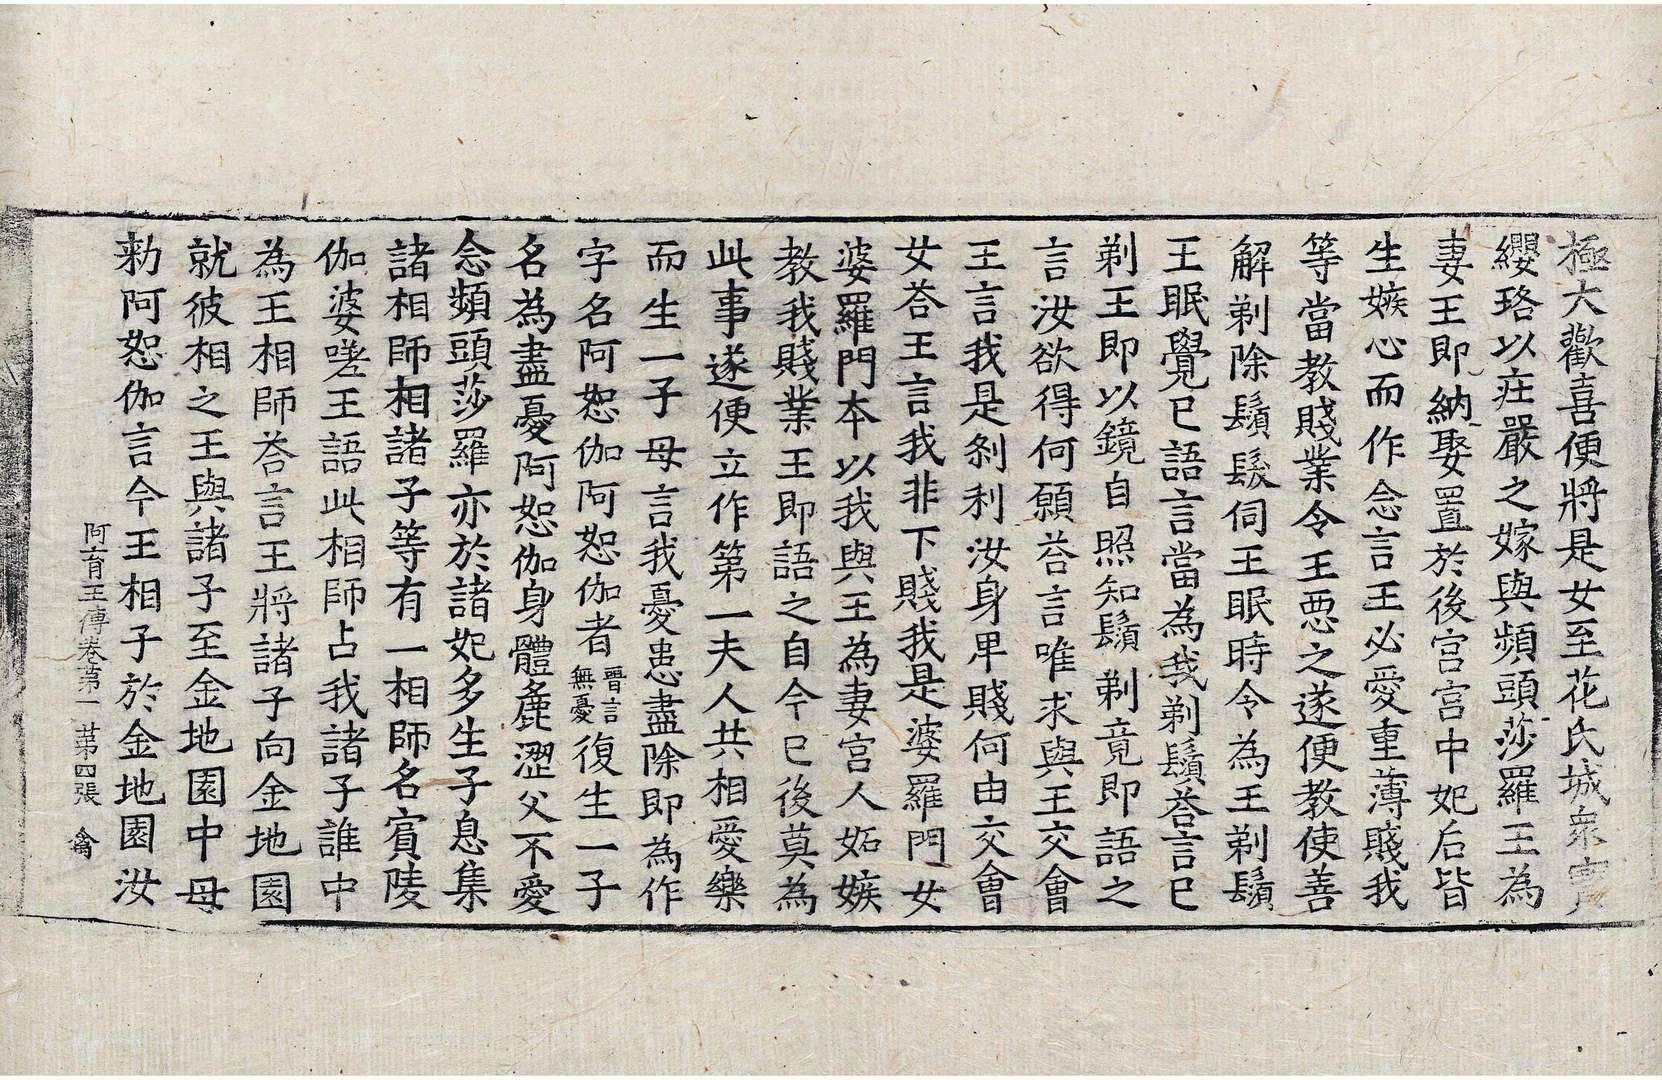 極大歡喜便將是女至花氏城衆寶
纓珞以在嚴之嫁與頻頭莎羅王為
妻王即納娶置於後宮宮中妃后皆
生嫉心而作念言王必愛重薄賤我
等當教賤業令王惡之遂便教使善
解剃除鬚髮伺王眠時令為王剃鬚
王眠覺已語言當為我剃鬚荅言已
剃王即以鏡自照知鬚剃竟即語之
言汝欲得何願荅言唯求與王交會
王言我是剎利汝身卑賤何由交會
女荅王言我非下賤我是婆羅門女
婆羅門本以我與王為妻宮人妬嫉
教我賤業王即語之自今已後莫為
此事遂便立作第一夫人共相愛樂
而生一子母言我憂患盡除即為作
字名阿恕伽阿恕伽者晉言無憂復生一子
名為盡憂阿恕伽身體麁澀父不愛
念頻頭莎羅亦於諸妃多生子息集
諸相師相諸子等有一相師名賓陵
伽婆嗟王語此相師占我諸子誰中
為王相師荅言王將諸子向金地園
就彼相之王與諸子至金地園中母
勑阿恕伽言今王相子於金地園汝
阿育王傳卷第一 苐四張 禽